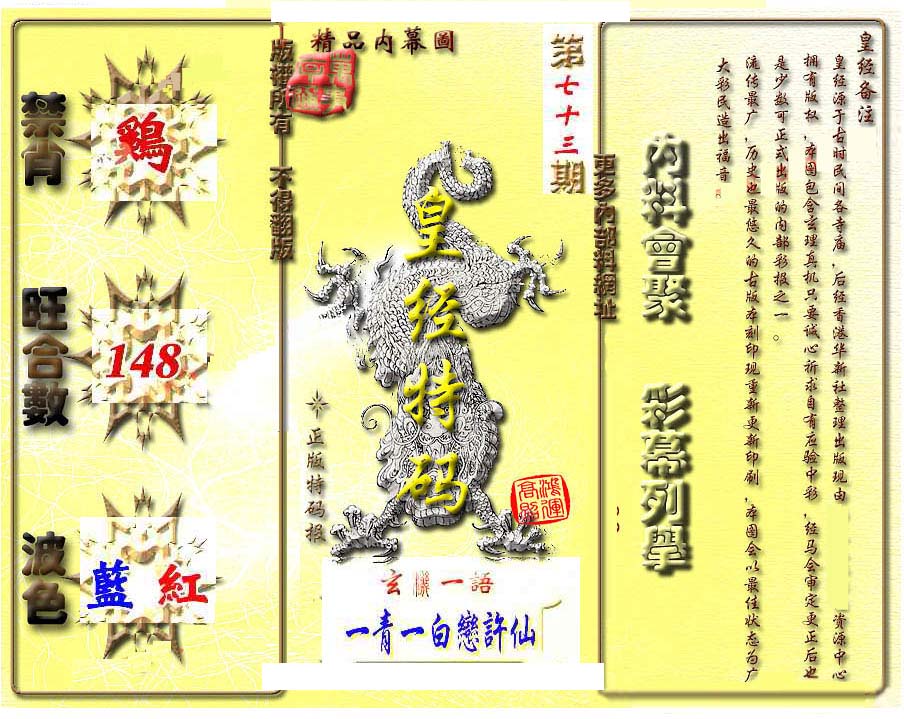 精品内幕圖
版權所有 不得翻版
第七十三期
更多內部料網址
禁肖
鷄
旺合數
148
波色
藍 紅
皇经特码
正版特码报
鴻運高照
玄機一語
一青一白戀許仙
內料會聚 彩幕列舉
皇经备注
皇经源于古时民间各寺庙，后经香港华新社整理出版现由 资源中心
拥有版权，本图包含玄理真机只要诚心祈求自有应验中彩，经马会审定更正后也
是少数可正式出版的内部彩报之一。
流传最广，历史也最悠久的古版本刻印现重新更新印刷，本图会以最佳状态为广
大彩民造出福音